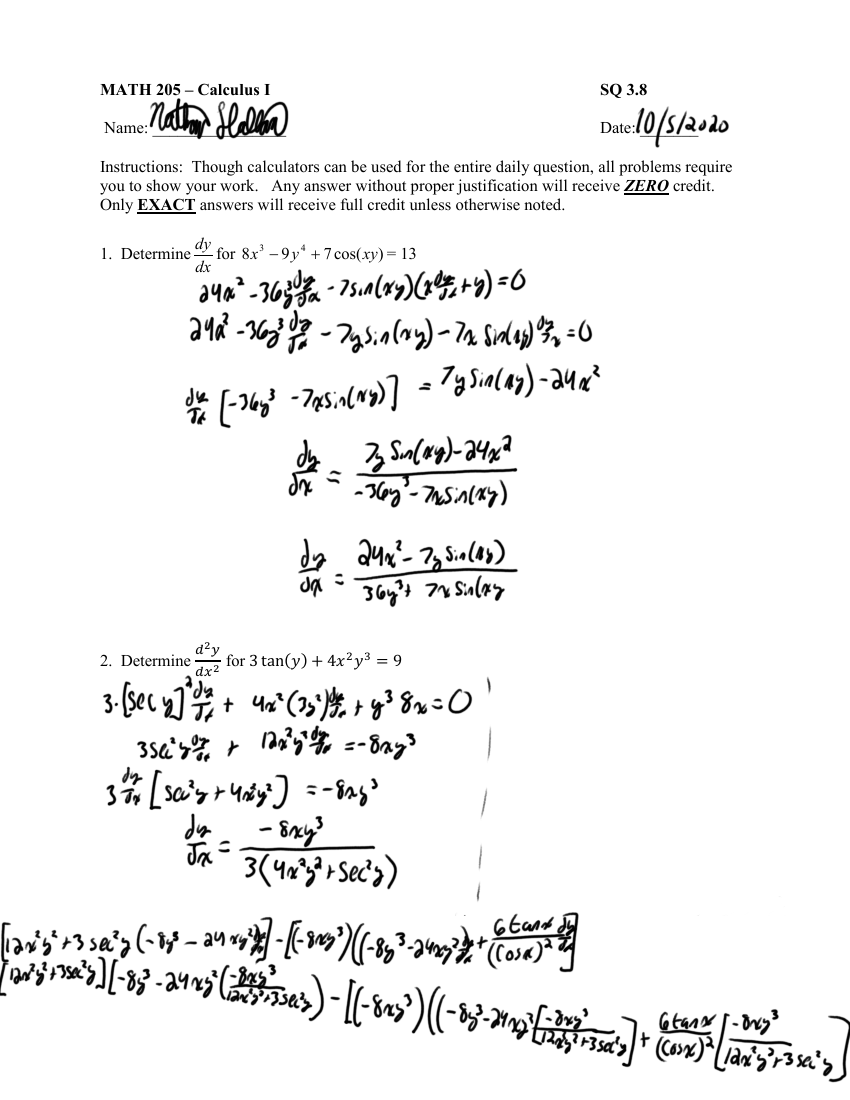 MATH 205 – Calculus I SQ 3.8
Name: Date: 10/5/2020
Instructions: Though calculators can be used for the entire daily question, all problems require
you to show your work. Any answer without proper justification will receive ZERO credit.
Only EXACT answers will receive full credit unless otherwise noted.
1. Determine dy/dx for 8x³ − 9y⁴ + 7cos(xy) = 13
24x² - 36y³ dy/dx - 7sin(xy)(x dy/dx + y) = 0
24x² - 36y³ dy/dx - 7y sin(xy) - 7x sin(xy) dy/dx = 0
dy/dx [-36y³ - 7x sin(xy)] = 7y sin(xy) - 24x²
dy/dx = (7y sin(xy) - 24x²)/(-36y³ - 7x sin(xy))
dy/dx = (24x² - 7y sin(xy))/(36y³ + 7x sin(xy
2. Determine d²y/dx² for 3 tan(y) + 4x²y³ = 9
3·[sec y]² dy/dx + 4x²(3y²) dy/dx + y³ 8x = 0
3sec²y dy/dx + 12x²y² dy/dx = -8xy³
3 dy/dx [sec²y + 4x²y²] = -8xy³
dy/dx = -8xy³/3(4x²y² + sec²y)
[12x²y² + 3sec²y(-8y³ - 24xy² dy/dx] - [(-8xy³)((-8y³ - 24xy² dy/dx + 6tanx/(cosx)² dy/dx]
[12x²y² + 3sec²y][-8y³ - 24xy²(-8xy³/12x²y² + 3sec²y) - [(-8xy³)((-8y³ - 24xy²[-8xy³/12x²y² + 3sec²y] + 6tanx/(cosx)² [-8xy³/12x²y² + 3sec²y]